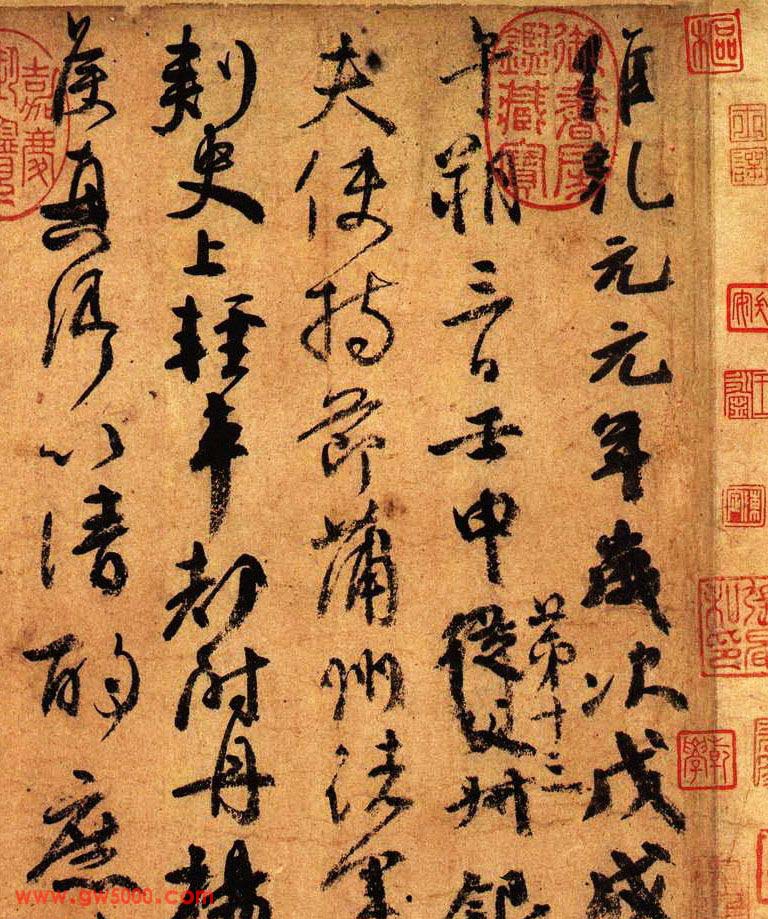 維乾元元年歲次戊戌
午朔三日壬申第十三從父叔銀
夫使持節蒲州諸軍
刺史上輕車都尉丹楊
侯真卿以清酌庶
御書房鑑藏寶
嘉慶
www.gw5000.com